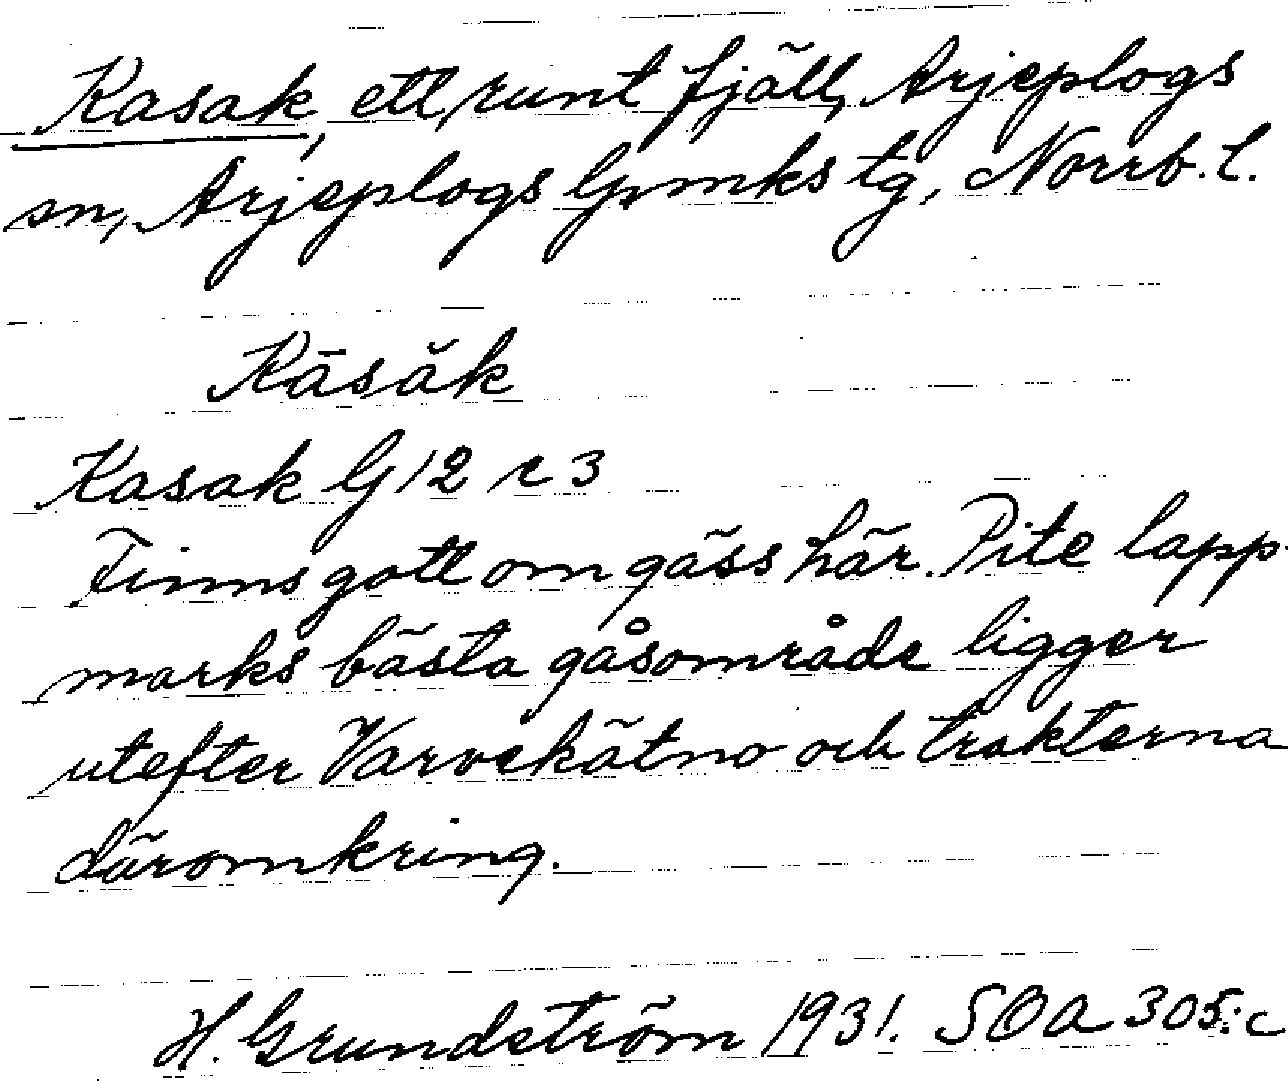 Kasak, ett runt fjäll, Arjeplogs
sn, Arjeplogs lpmks tg, Norrb. l.
Kāsăk
Kasak G 12 c 3
Finns gott om gäss här. Pite lapp
marks bästa gåsområde ligger
utefter Varvekätno och trakterna
däromkring.
H. Grundström 1931. SOA 305:c